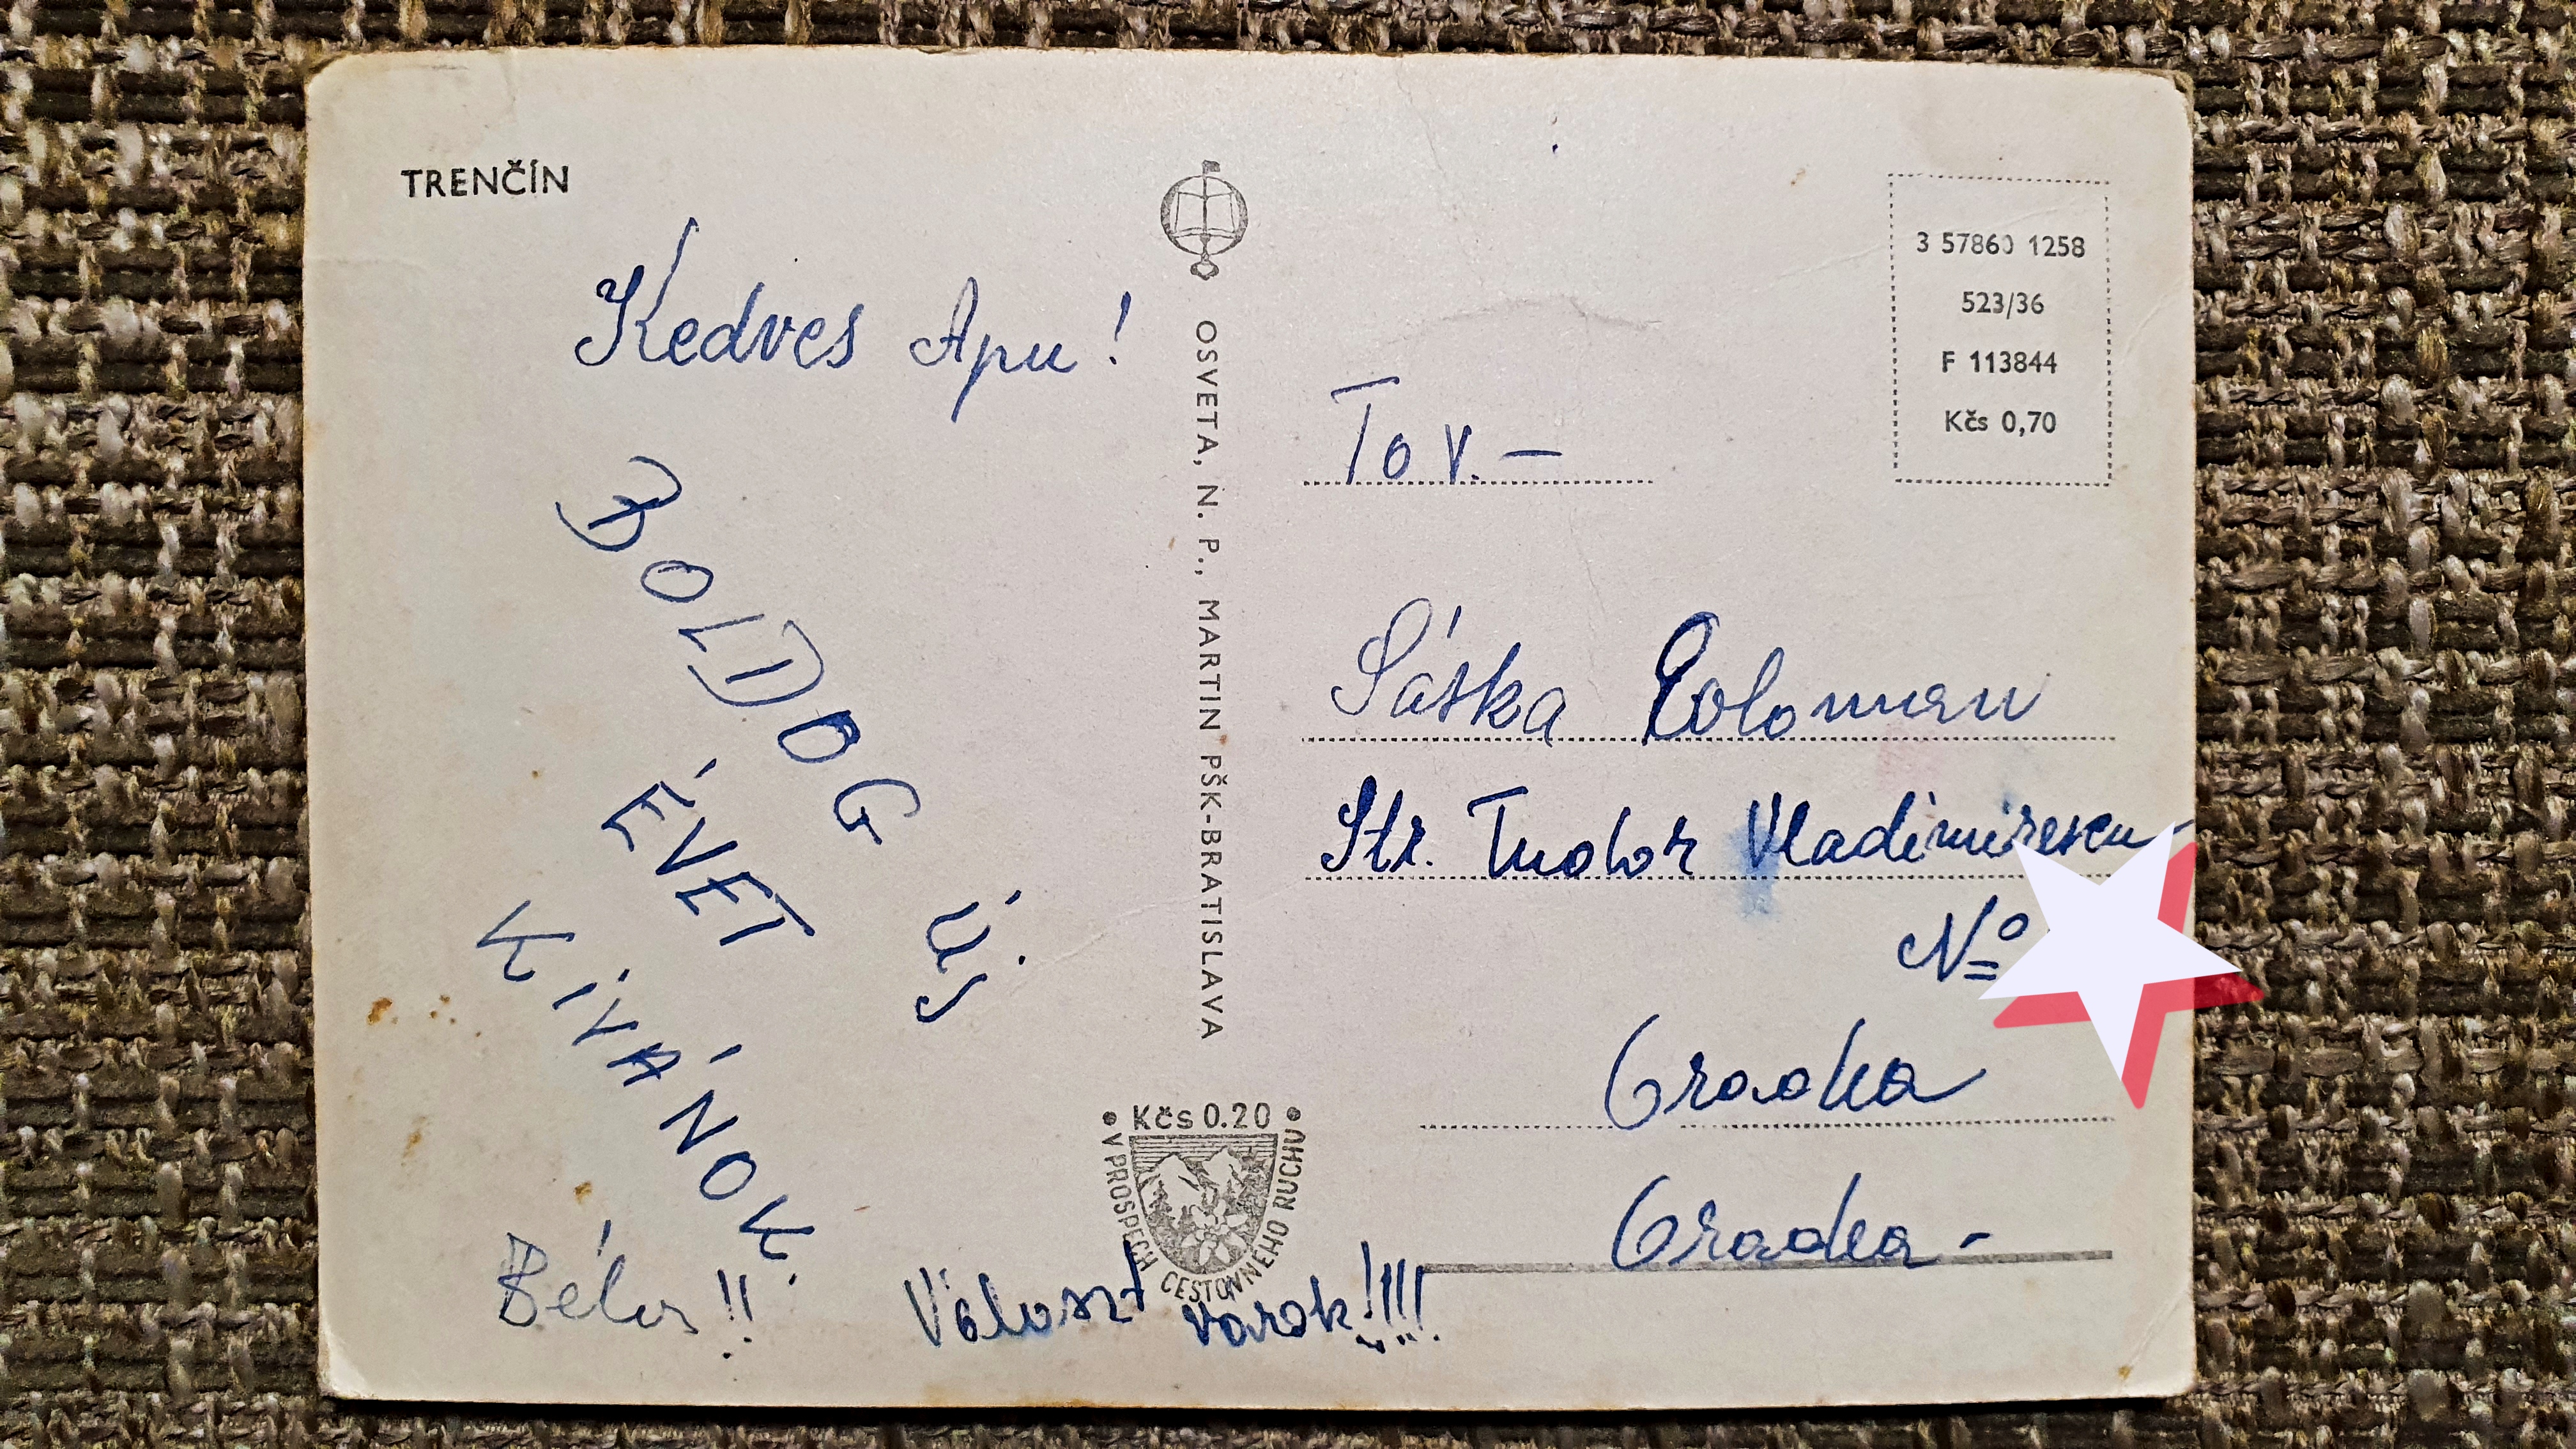 TRENČÍN
Kedves Apu!
BOLDOG ÚJ
ÉVET
KÍVÁNOK.
Béla!!
Választ várok!!!!
OSVETA, N. P., MARTIN PŠK-BRATISLAVA
Kčs 0.20
V PROSPECH CESTOVNÉHO RUCHU
3 57860 1258
523/36
F 113844
Kčs 0,70
Tov.-
Sáska Coloman
Str. Tudor Vladimirescu
Nº
Oradea
Oradea-